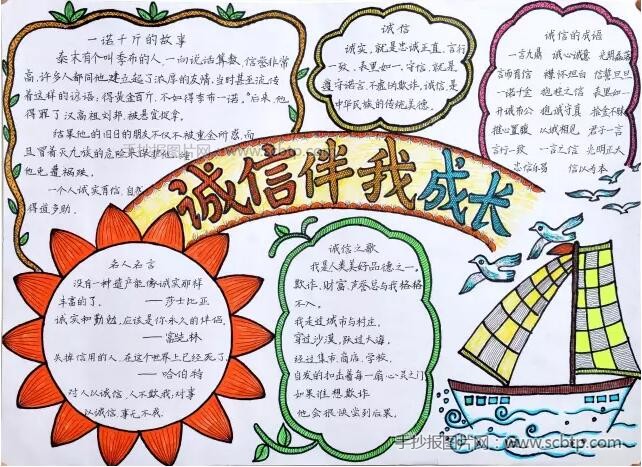 一诺千斤的故事
秦末有个叫季布的人,一向说话算数,信誉非常
高,许多人都同他建立起了浓厚的友情,当时甚至流传
着这样的谚语:得黄金百斤,不如得季布一诺。"后来,他
得罪了汉高祖刘邦,被悬赏捉拿。
结果他的旧日的朋友不仅不被重金所惑,而
且冒着灭九族的危险来保护他,
他免遭祸殃。
一个人诚实有信,自然
得道多助.
诚信
诚实,就是忠诚正直,言行
一致,表里如一,守信,就是
遵守诺言,不虚伪欺诈,诚信,是
中华民族的传统美德.
诚信的成语
一言九鼎 诚心诚意 光明磊落
言而有信 襟怀坦白 信誓旦旦
一诺千金 抱柱之信 表里如一
开诚布公 抱诚守真 拾金不昧
推心置腹 以诚相见 君子一言
言行一致 一言之信 光明正大
忠信乐易 信以为本
手抄报图片网:www.scbtp.com
诚信伴我成长
名人名言
没有一种遗产能像诚实那样
丰富的了.
——莎士比亚
诚实和勤勉,应该是你永久的伴侣.
——富兰林
失掉信用的人,在这个世界上已经死了.
——哈伯特
对人以诚信,人不欺我,对事
以诚信,事无不成.
诚信之歌
我是人类美好品德之一.
欺诈,财富,声誉总与我格格
不入.
我走过城市与村庄,
穿过沙漠,跃过大海,
经过集市,商店,学校,
自发的扣击着每一扇心灵之门
如果谁想欺诈
他会很快尝到后果.
手抄报图片网:www.scbtp.com